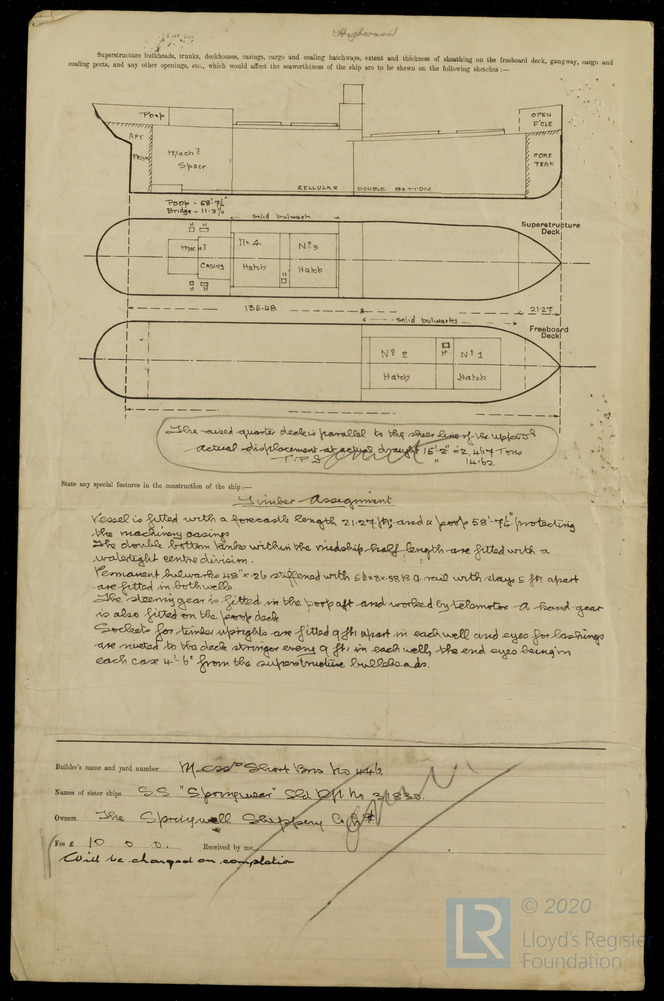 Highwood
Superstructure bulkheads, trunks, deckhouses, casings, cargo and coaling hatchways, extent and thickness of sheathing on the freeboard deck, gangway, cargo and
coaling ports, and any other openings, etc., which would affect the seaworthiness of the ship are to be shewn on the following sketches:—
Poop
OPEN
F'CLE
AFT
PEAK
Mach'y
Space
FORE
PEAK
CELLULAR DOUBLE BOTTOM
Poop - 58'-7¼"
Bridge - 11-3½
solid bulwark
Superstructure
Deck
H H
Casing
No 4
Hatch
No 3
Hatch
H
H H
136.48
21.27
solid bulwarks
Freeboard
Deck
No 2
Hatch
H
No 1
Hatch
The raised quarter deck is parallel to the sheer line of the upper dk
actual displacement at actual draught 15'-2" = 2,467 Tons
T.P.I. " 14.62
State any special features in the construction of the ship:—
Timber Assignment
Vessel is fitted with a forecastle length 21.27 ft, and a poop 58'-7¼" protecting
the machinery casings
The double bottom tanks within the midship half length are fitted with a
watertight centre division.
Permanent bulwarks 48" x .26 stiffened with rail with stays 5 ft apart
are fitted in both wells.
The steering gear is fitted in the poop aft and worked by telemotor. A hand gear
is also fitted on the poop deck
Sockets for timber uprights are fitted 9 ft apart in each well and eyes for lashings
are riveted to the deck stringer every 9 ft, in each well, the end eyes being in
each case 4'-6" from the superstructure bulkheads.
Builder's name and yard number Messrs Short Bros No 446.
Names of sister ships S.S. "Springwear" Sld Rpt No 31830.
Owners The Springwell Shipping Co Ltd
Fee £ 10 0 0. Received by me,
Will be charged on completion
LR
© 2020
Lloyd's Register
Foundation